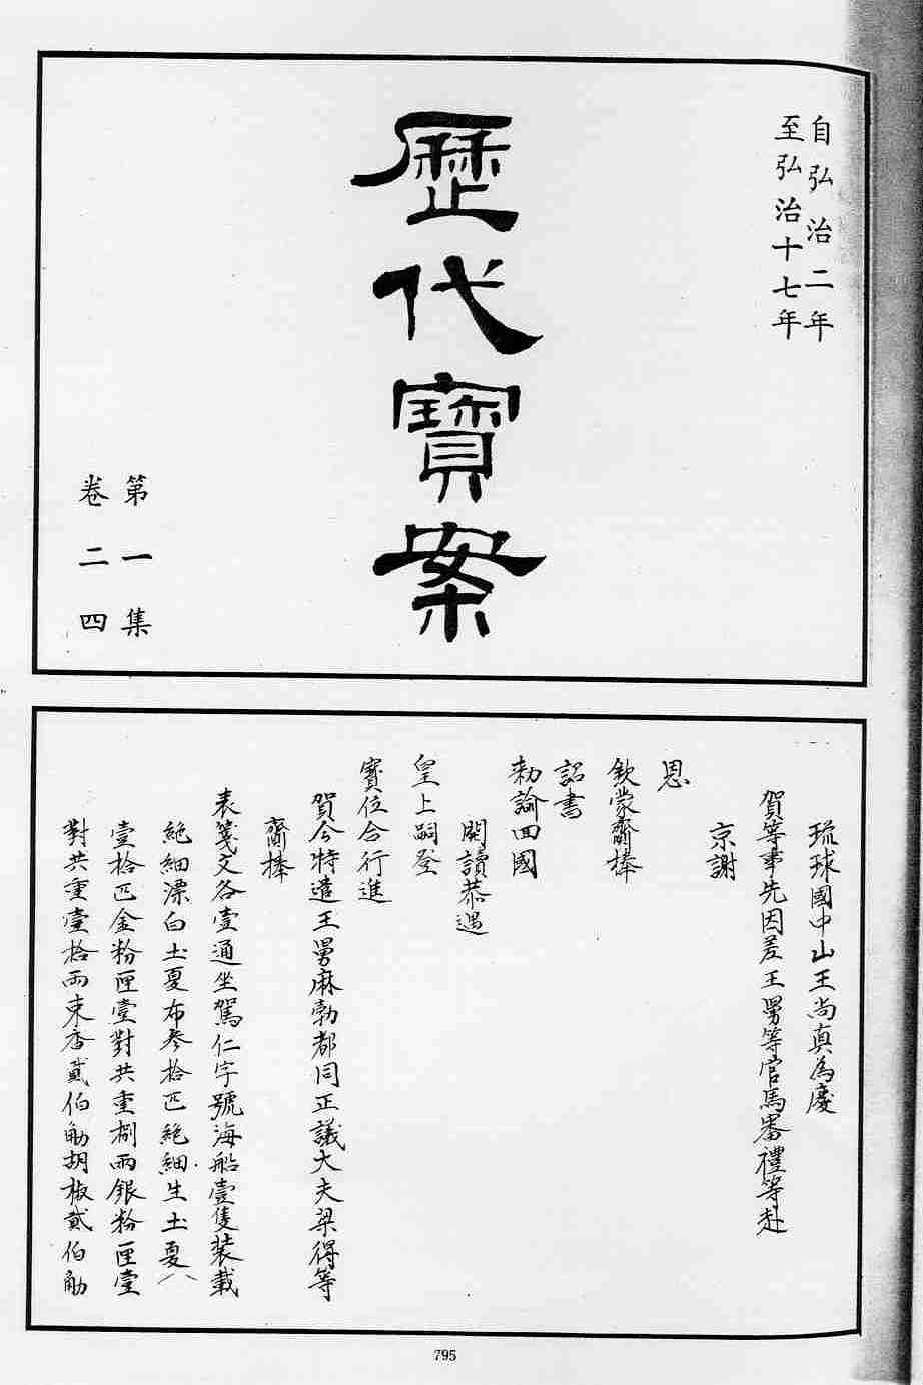 自弘治二年
至弘治十七年
歷代寶案
第一集
卷二四
琉球國中山王尚真為慶
賀等事先因差王舅等官馬審禮等赴
京謝
恩
欽蒙齎捧
詔書
勅諭回國
開讀恭遇
皇上嗣登
寶位合行進
賀今特遣王舅麻勃都同正議大夫梁得等
齎捧
表箋文各壹通坐駕仁字號海船壹隻裝載
絶細漂白土夏布叁拾匹絶細生土夏八
壹拾匹金粉匣壹對共重捌兩銀粉匣壹
對共重壹拾兩束香貳伯觔胡椒貳伯觔
795